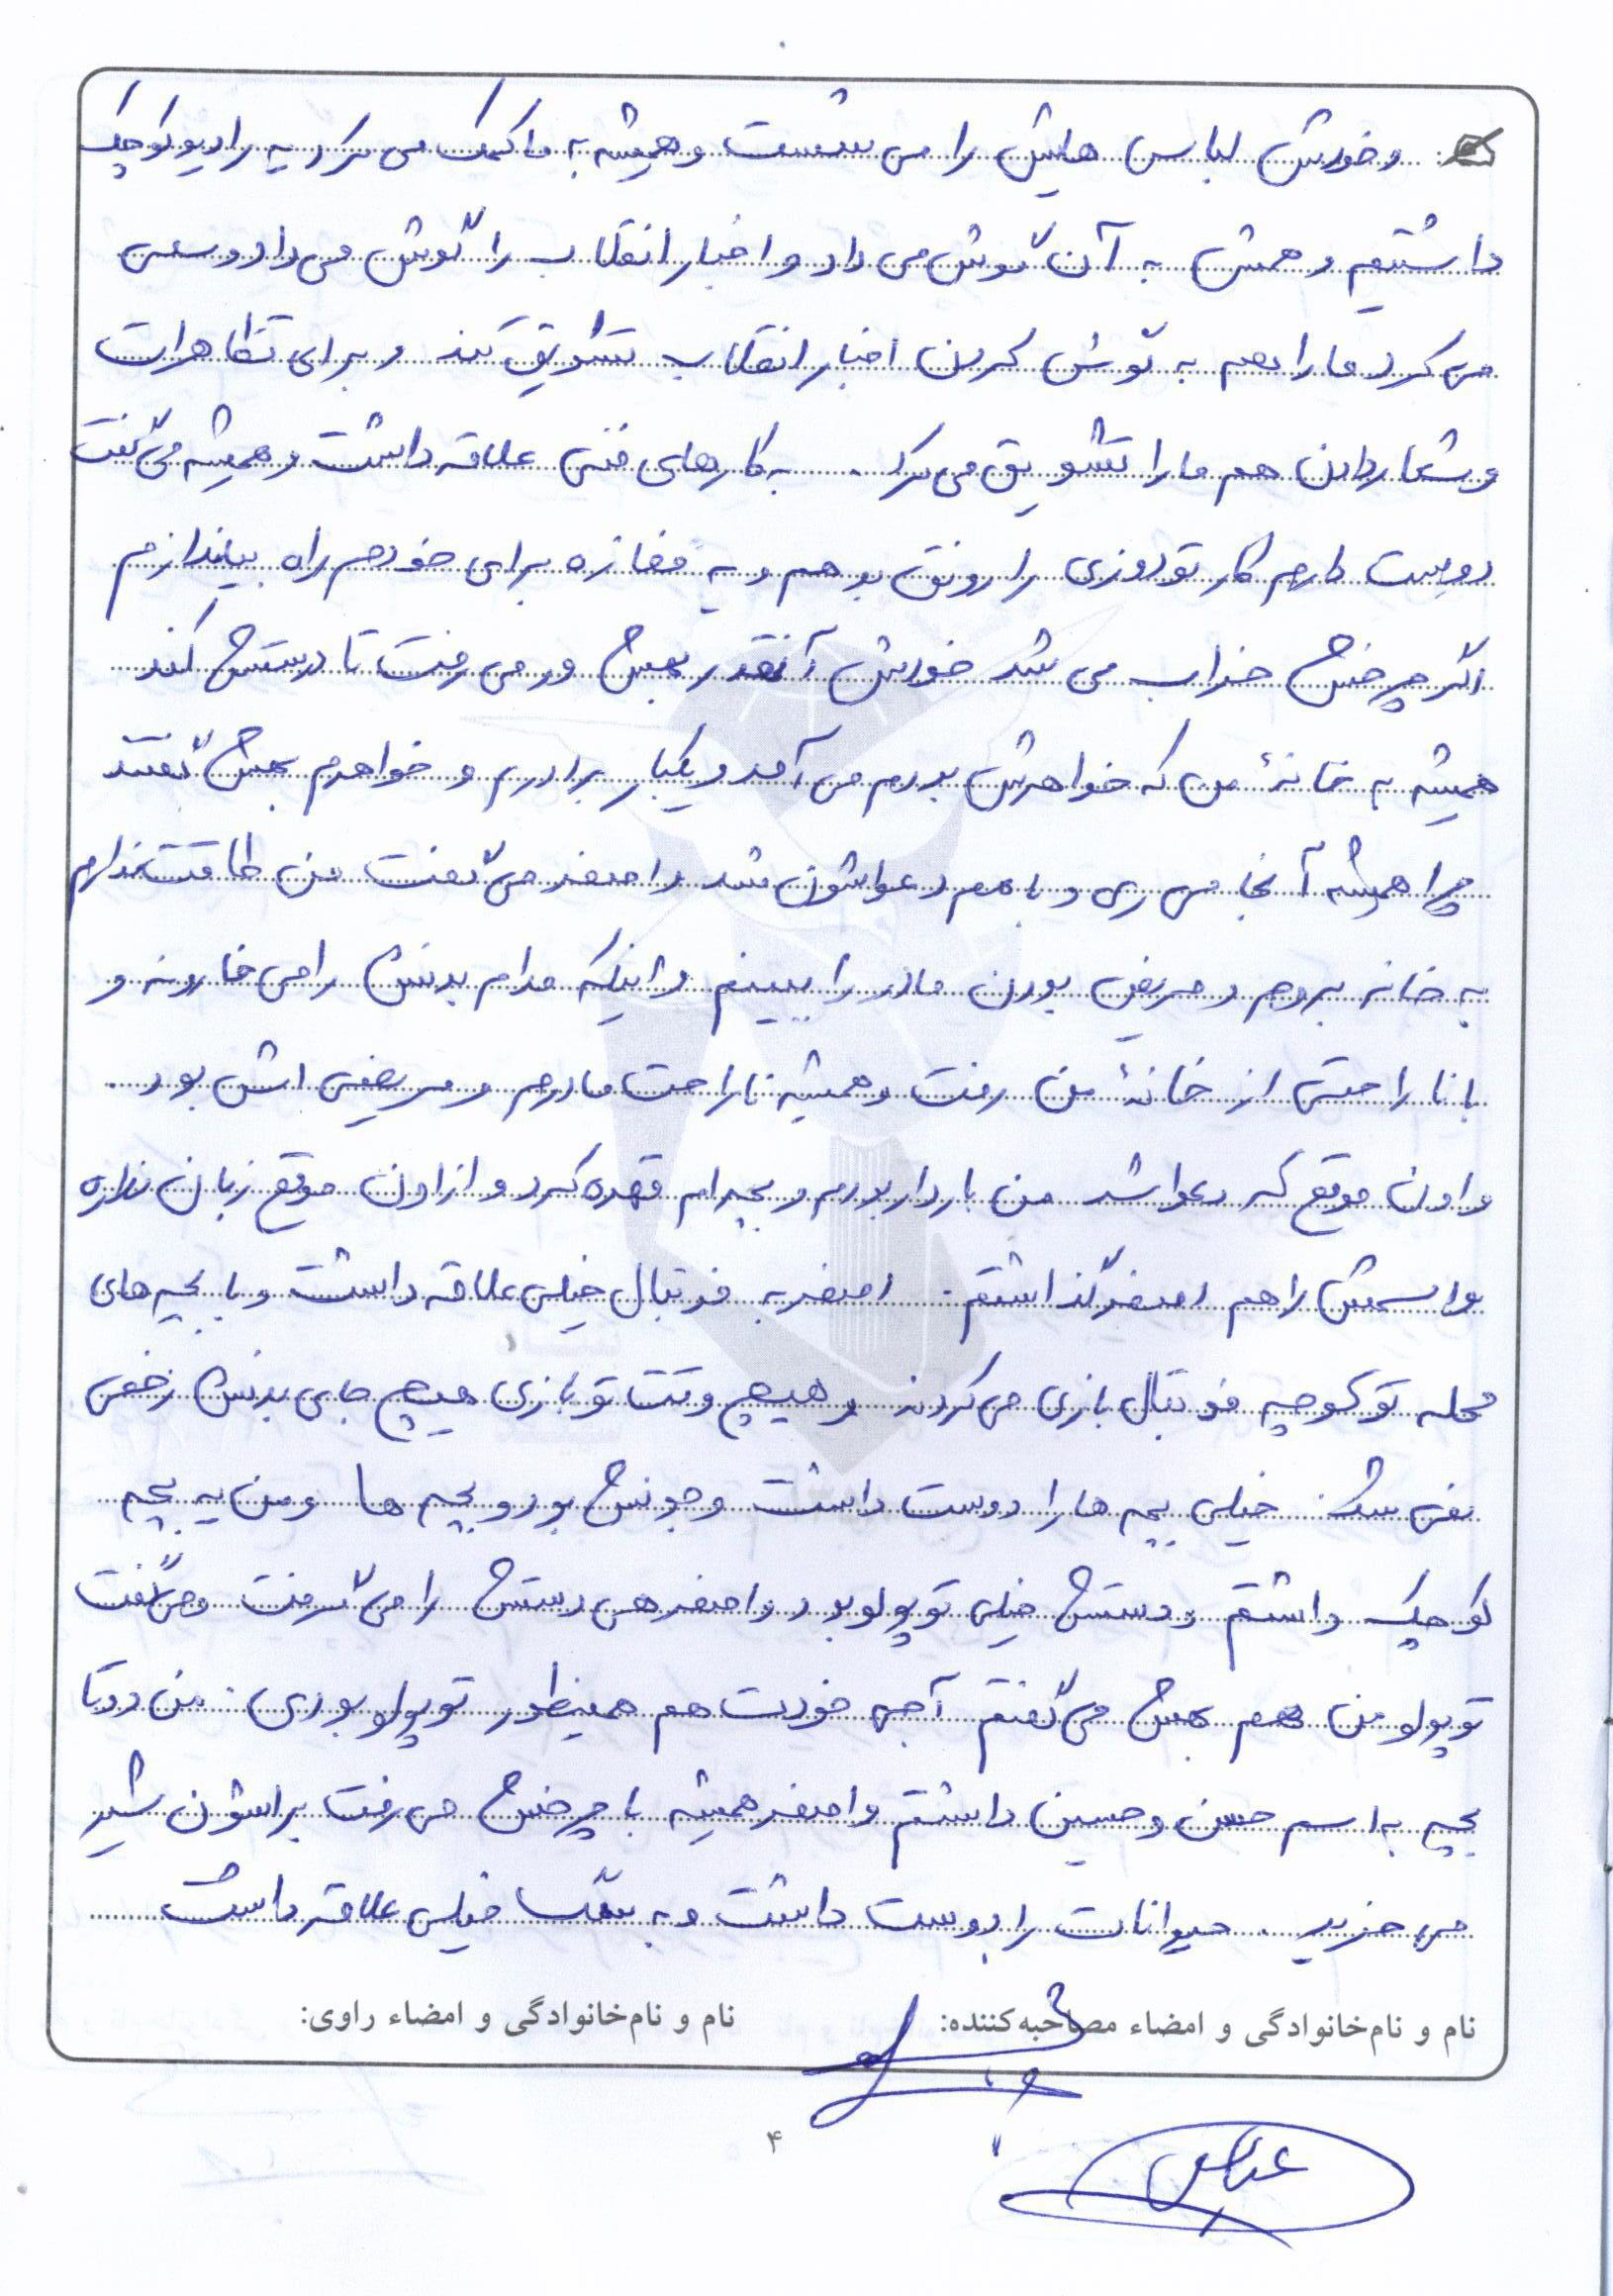 وخودش لباس هایش را می شست و همیشه به ما کمک می کرد یه رادیو کوچک
داشتیم و همش به آن گوش می داد و اخبار انقلاب را گوش می داد و سعی
می کرد ما را هم به گوش کردن اخبار انقلاب تشویق کند و برای تظاهرات
و شعار دادن هم ما را تشویق می کرد. به کارهای فنی علاقه داشت و همیشه می گفت
دوست دارم کار تودوزی را رونق بدهم و یه مغازه برای خودم راه بیاندازم
اگر چرخش خراب می شد خودش آنقدر بهش ور می رفت تا درستش کند
همیشه به خانۀ من که خواهرش بودم می آمد و یکبار برادرم و خواهرم بهش گفتند
چرا همیشه آنجا می ری و با هم دعواشون شد و اصغر می گفت من طاقت ندارم
به خانه بروم و مریض بودن مادر را ببینم و اینکه مدام بدنش را می خارونه و
با ناراحتی از خانۀ من رفت و همیشه ناراحت مادرم و مریضی اش بود.
و اون موقع که دعوا شد من باردار بودم و بچه ام قهوه کرد و از اون موقع زبان نداره
و اسمش را هم اصغر گذاشتم. اصغر به فوتبال خیلی علاقه داشت و با بچه های
محله تو کوچه فوتبال بازی می کردند و هیچ وقت تو بازی هیچ جای بدنش زخمی
نمی شد. خیلی بچه ها را دوست داشت و جونش بود و بچه ها و من یه بچه
کوچک داشتم و دستش خیلی توپولو بود و اصغر هی دستش را می گرفت و می گفت
توپولو من هم بهش می گفتم آجی خودت هم همینطور توپولو بودی. من دو تا
بچه به اسم حسن و حسین داشتم و اصغر همیشه با چرخش می رفت براشون شیر
می خرید. حیوانات را دوست داشت و به خیلی علاقه داشت
نام و نام‌خانوادگی و امضاء مصاحبه‌کننده:
نام و نام‌خانوادگی و امضاء راوی:
۴